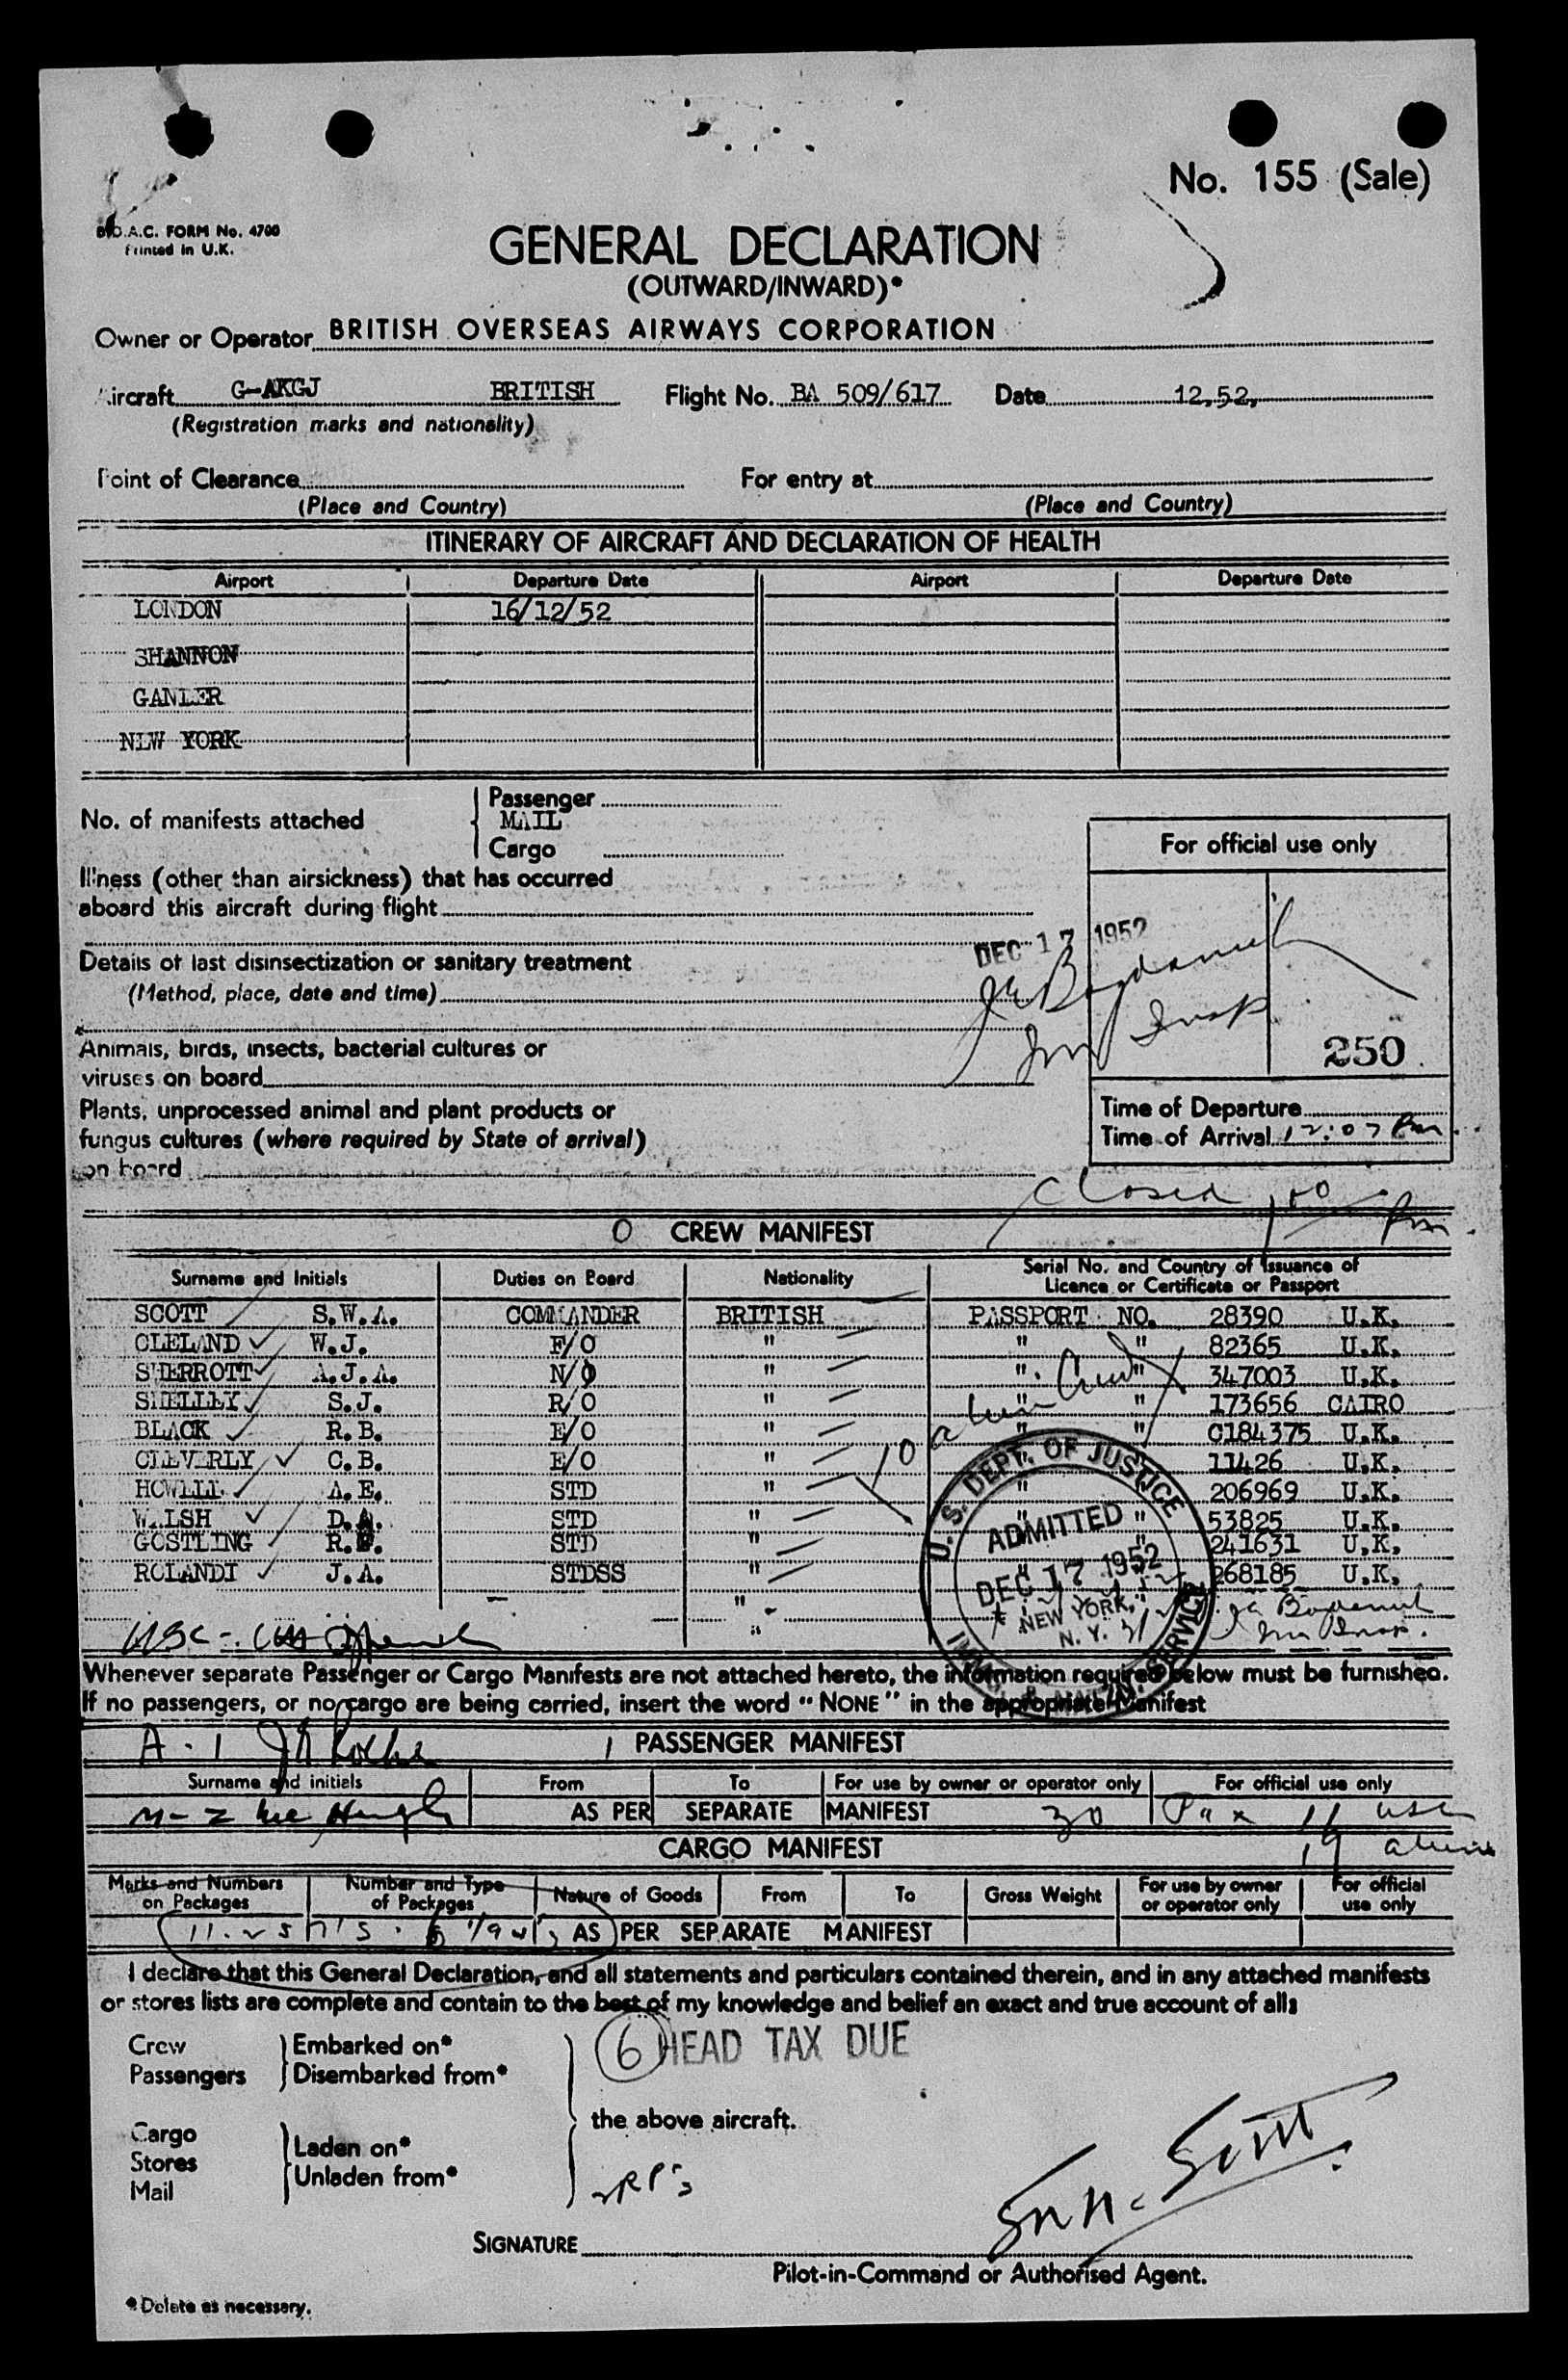 No. 155 (Sale)
B.O.A.C. FORM No. 4700
Printed in U.K.
GENERAL DECLARATION
(OUTWARD/INWARD)*
Owner or Operator BRITISH OVERSEAS AIRWAYS CORPORATION
Aircraft G-AKGJ BRITISH Flight No. BA 509/617 Date 12,52,
(Registration marks and nationality)
Point of Clearance For entry at
(Place and Country) (Place and Country)
ITINERARY OF AIRCRAFT AND DECLARATION OF HEALTH
Airport Departure Date Airport Departure Date
LONDON 16/12/52
SHANNON
GANDER
NEW YORK
No. of manifests attached
Passenger
MAIL
Cargo
For official use only
Illness (other than airsickness) that has occurred
aboard this aircraft during flight
DEC 17 1952
Details of last disinsectization or sanitary treatment
(Method, place, date and time)
Imm Insp
250
Animals, birds, insects, bacterial cultures or
viruses on board
Plants, unprocessed animal and plant products or
fungus cultures (where required by State of arrival)
on board
Time of Departure
Time of Arrival 12:07 Pm
Closed 1 00 Pm.
0 CREW MANIFEST
Surname and Initials Duties on Board Nationality Serial No. and Country of Issuance of
Licence or Certificate or Passport
SCOTT S.W.A. COMMANDER BRITISH PASSPORT NO. 28390 U.K.
CLELAND W.J. F/O " " " 82365 U.K.
SHERROTT A.J.A. N/O " " " 347003 U.K.
SHELLEY S.J. R/O " " " 173656 CAIRO
BLACK R.B. E/O " " " C184375 U.K.
CLEVERLY C.B. E/O " " 11426 U.K.
HOWELL A.E. STD " " 206969 U.K.
WALSH D.A. STD " " " 53825 U.K.
GOSTLING R. STD " " 241631 U.K.
ROLANDI J.A. STDSS " " 268185 U.K.
10 alien crew
U.S. DEPT. OF JUSTICE
ADMITTED
DEC 17 1952
NEW YORK,
N. Y.
IMMIG. & NATZN. SERVICE
Imm Insp.
USC -
Whenever separate Passenger or Cargo Manifests are not attached hereto, the information required below must be furnished.
If no passengers, or no cargo are being carried, insert the word "NONE" in the appropriate Manifest
A - 1
PASSENGER MANIFEST
Surname and initials From To For use by owner or operator only For official use only
M - Z Mc Hugh AS PER SEPARATE MANIFEST 30 Pax 11 usc
19 aliens
CARGO MANIFEST
Marks and Numbers
on Packages
Number and Type
of Packages
Nature of Goods From To Gross Weight For use by owner
or operator only
For official
use only
AS PER SEPARATE MANIFEST
I declare that this General Declaration, and all statements and particulars contained therein, and in any attached manifests
or stores lists are complete and contain to the best of my knowledge and belief an exact and true account of all:
Crew
Passengers
Embarked on*
Disembarked from*
6 HEAD TAX DUE
the above aircraft.
Cargo
Stores
Mail
Laden on*
Unladen from*
SIGNATURE
Pilot-in-Command or Authorised Agent.
* Delete as necessary.